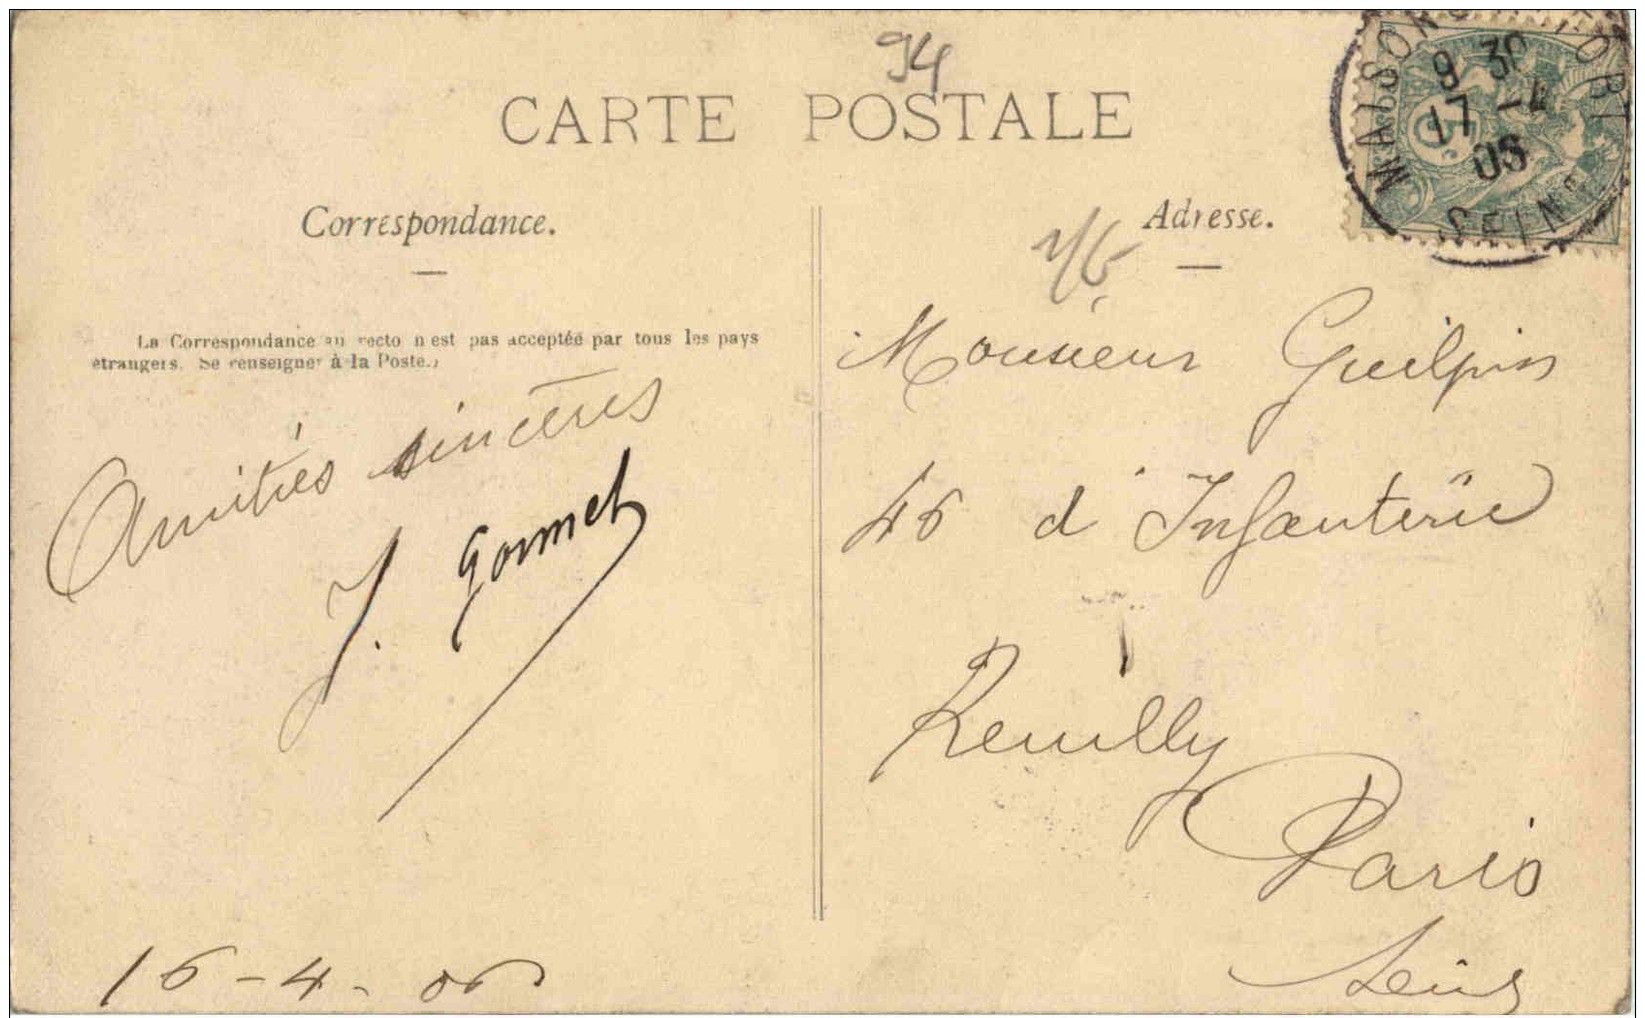 94
CARTE POSTALE
MAISONS-ALFORT
9 30
17 -4
06
SEINE
5
Correspondance.
La Correspondance au recto n'est pas acceptée par tous les pays
étrangers. Se renseigner à la Poste.)
Amitiés sincères
J. Gormet
16 - 4 - 06
Adresse.
Monsieur Guilpin
46 d'Infanterie
Reuilly
Paris
Seine